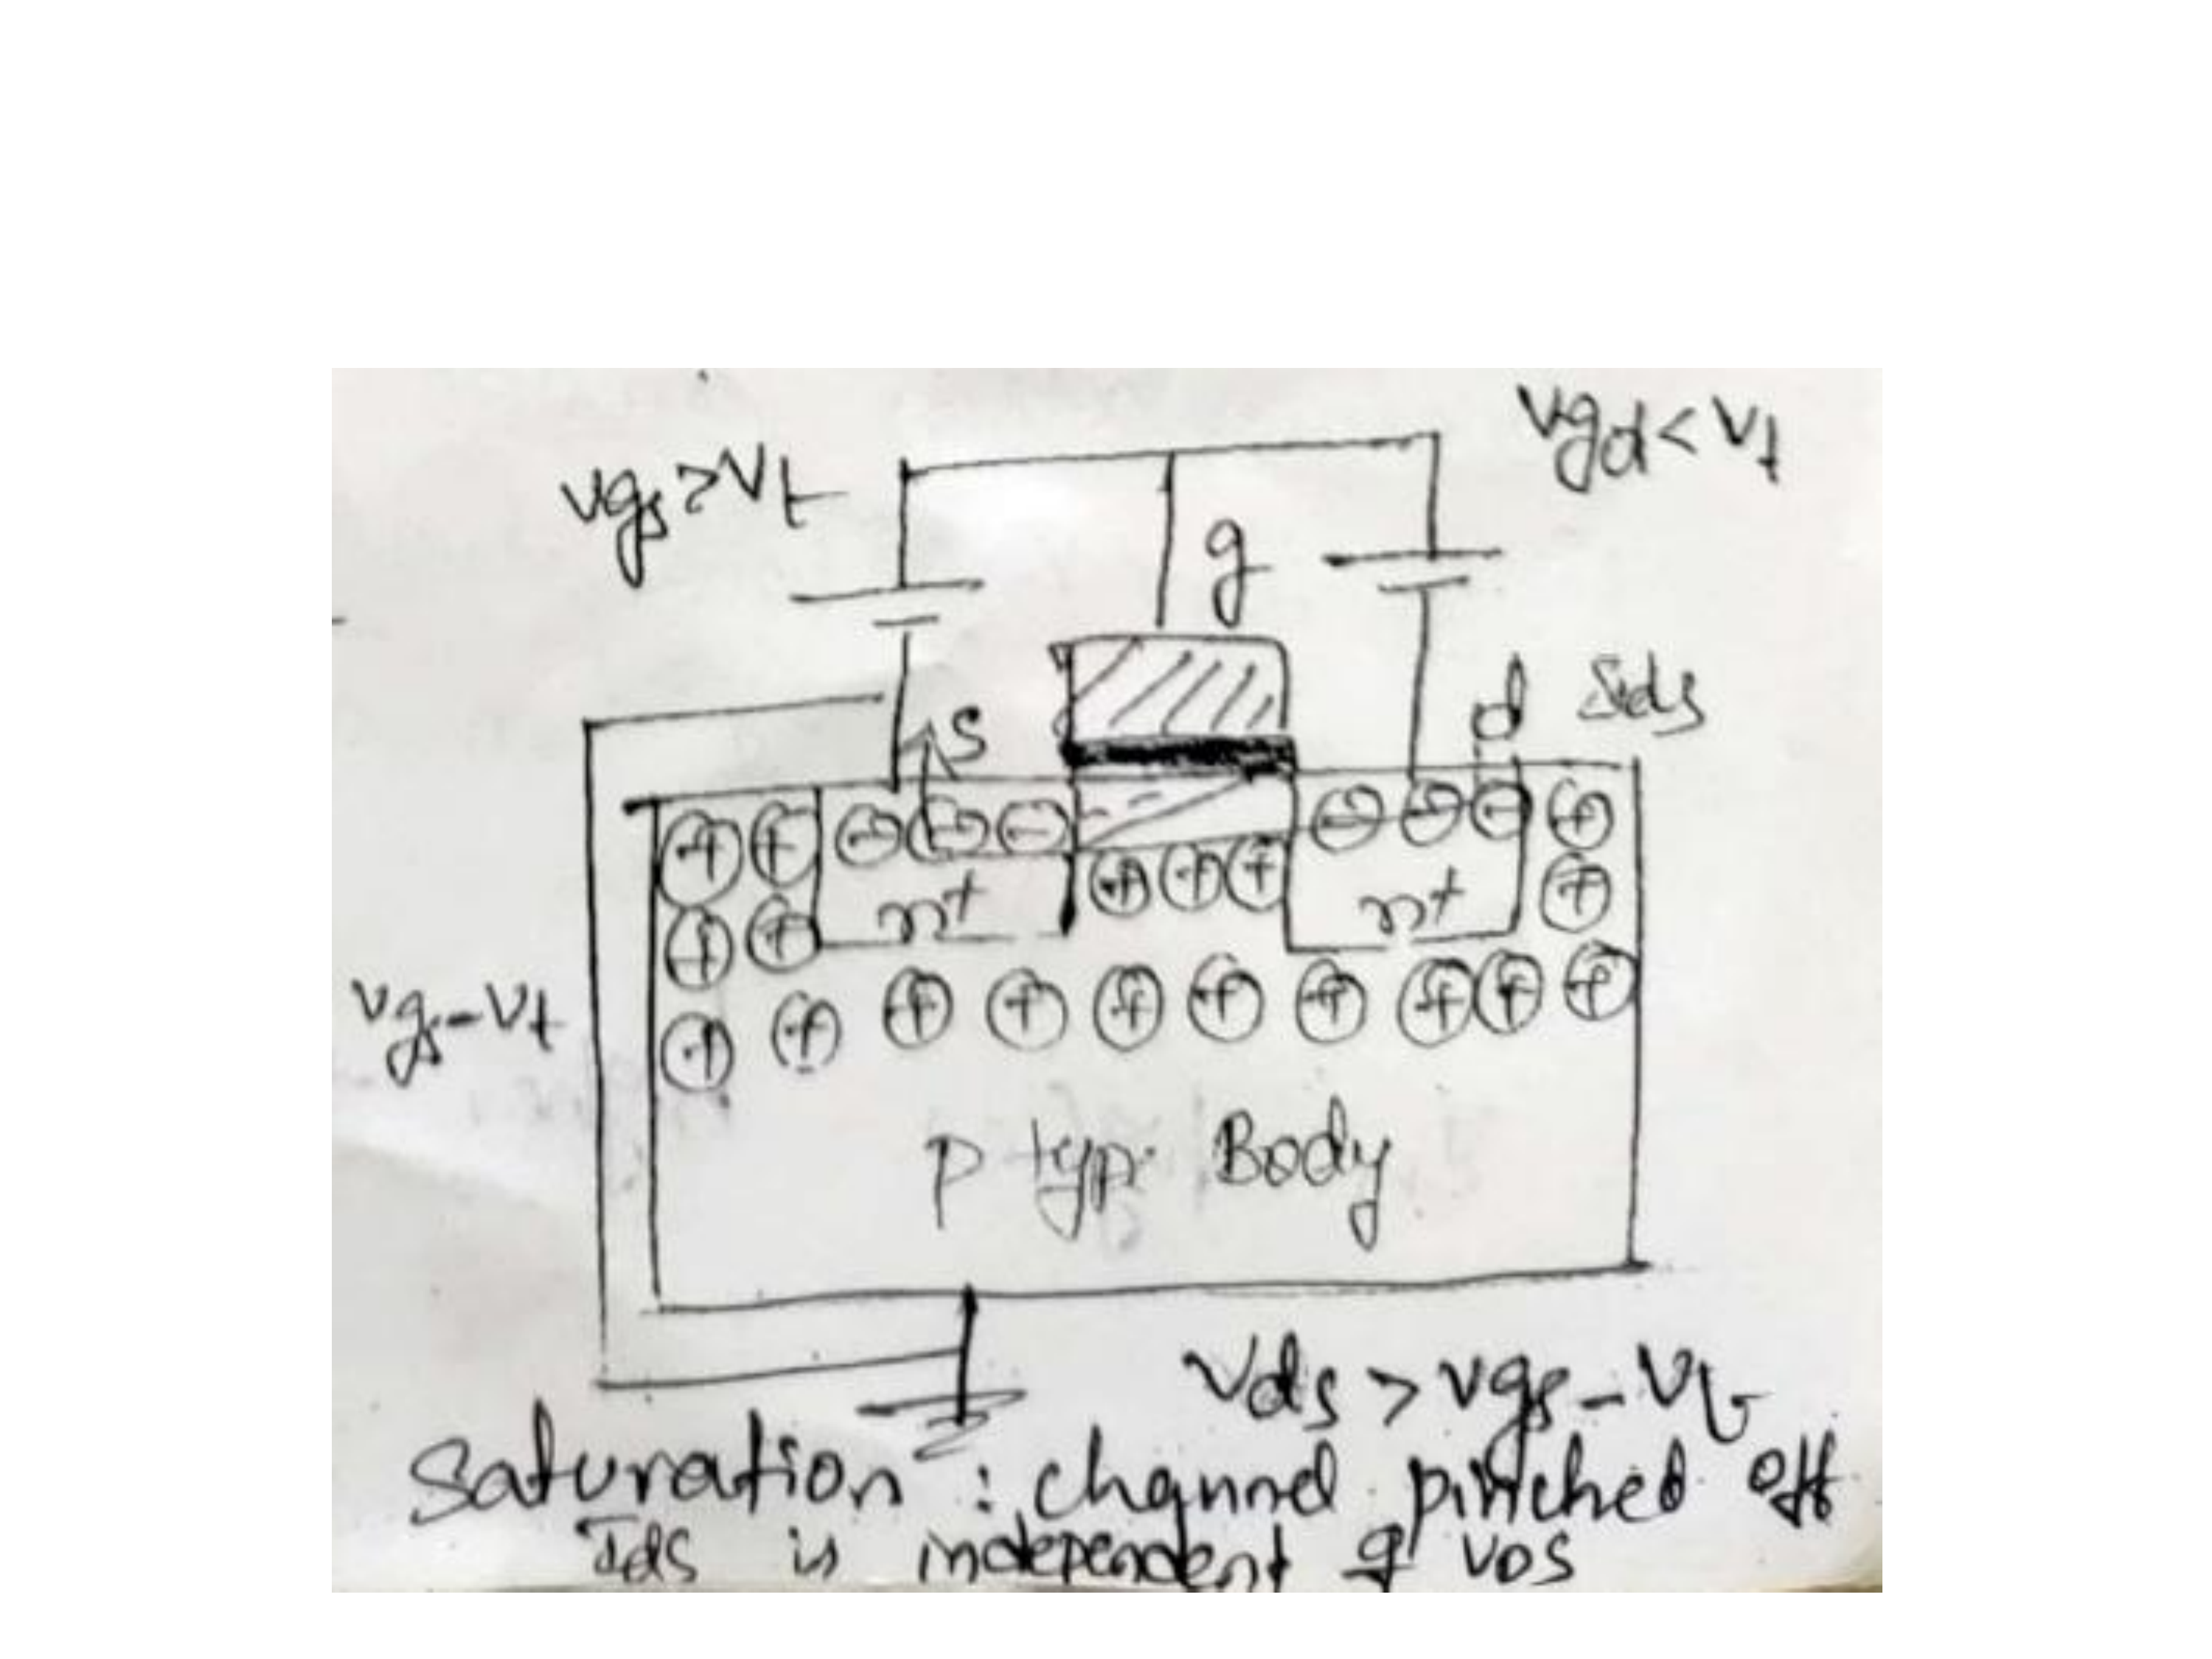 Vgd < Vt
Vgs > Vt
g
s
d
n+
n+
Vgs - Vt
p type Body
Vds > Vgs - Vt
Saturation : channel pinched off
Ids is independent of VDS